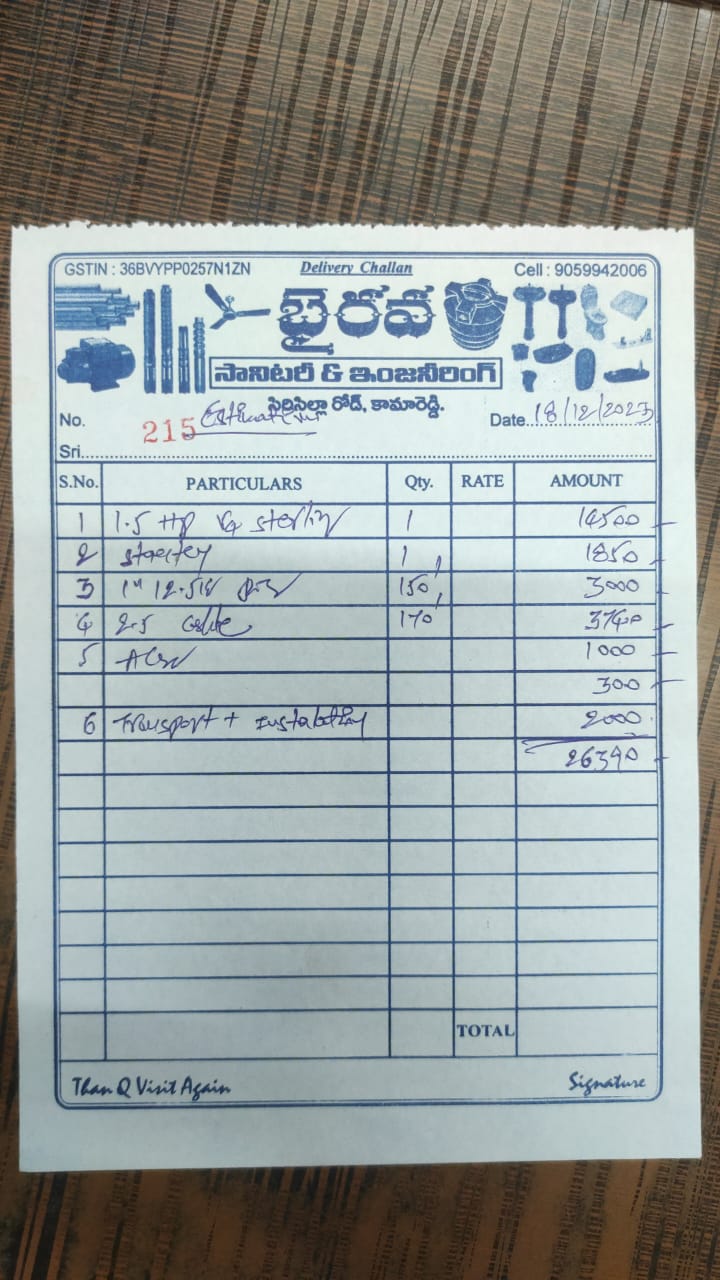 GSTIN : 36BVYPP0257N1ZN Delivery Challan Cell : 9059942006
భైరవ
సానిటరీ & ఇంజనీరింగ్
సిరిసిల్లా రోడ్, కామారెడ్డి.
No. 215 Date 18/12/2023
Sri
S.No. PARTICULARS Qty. RATE AMOUNT
1 1.5 HP V4 1 14500
2 1 1850
3 1" 150' 3000
4 2.5 170' 3740
5 1000
300
6 Transport + 2000
26390
TOTAL
Than Q Visit Again Signature